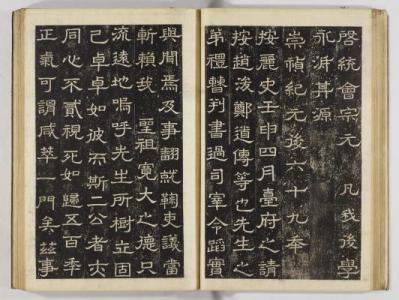 啓統會宗元 凡我後學
永泝其源
崇禎紀元後六十九秊
按麗史壬申四月臺府之請
按趙浚鄭道傳等也先生之
弟禮曹判書過司宰令蹈實
與聞焉及事翻就鞫吏議當
斬賴我 聖祖寬大之德只
流遠地嗚呼先生所樹立固
已卓卓如彼而斯二公者亦
同心不貳視死如歸五百秊
正氣可謂咸萃一門矣茲事